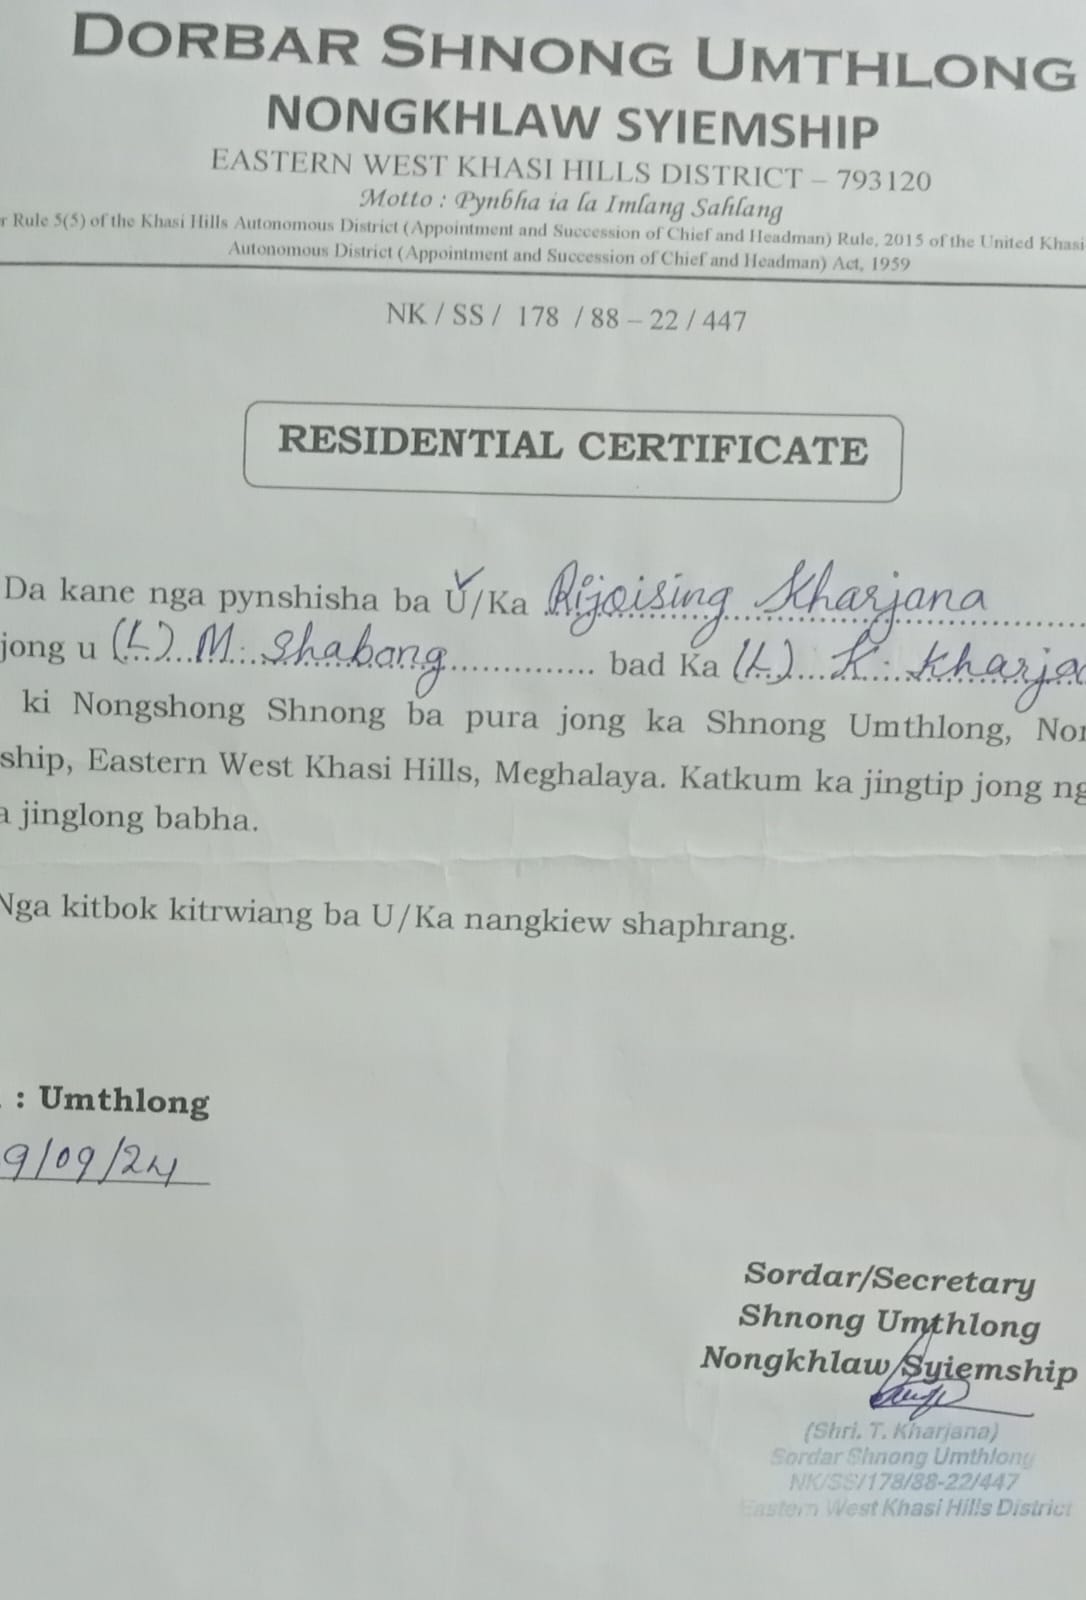 DORBAR SHNONG UMTHLONG
NONGKHLAW SYIEMSHIP
EASTERN WEST KHASI HILLS DISTRICT – 793120
Motto : Pynbha ia la Imlang Sahlang
r Rule 5(5) of the Khasi Hills Autonomous District (Appointment and Succession of Chief and Headman) Rule, 2015 of the United Khasi
Autonomous District (Appointment and Succession of Chief and Headman) Act, 1959
NK / SS / 178 / 88 – 22 / 447
RESIDENTIAL CERTIFICATE
Da kane nga pynshisha ba U/Ka Rijoising Kharjana
jong u (L) M. Shabong bad Ka (L) K. Kharja
ki Nongshong Shnong ba pura jong ka Shnong Umthlong, Non
ship, Eastern West Khasi Hills, Meghalaya. Katkum ka jingtip jong ng
a jinglong babha.
Nga kitbok kitrwiang ba U/Ka nangkiew shaphrang.
: Umthlong
9/09/24
Sordar/Secretary
Shnong Umthlong
Nongkhlaw Syiemship
(Shri. T. Kharjana)
Sordar Shnong Umthlong
NK/SS/178/88-22/447
Eastern West Khasi Hills District